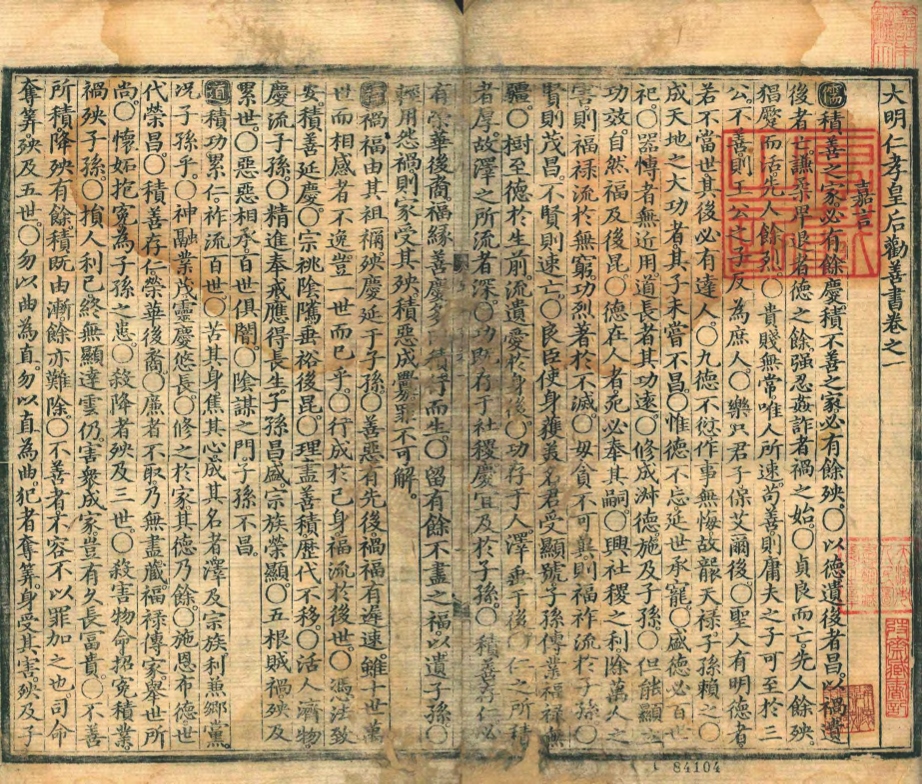 大明仁孝皇后勸善書卷之一
嘉言
儒積善之家必有餘慶積不善之家必有餘殃○以德遺後者昌以禍遺
後者亡謙柔卑退者德之餘强忍姦詐者禍之始○貞良而亡先人餘殃
猖蹷而活先人餘烈○貴賤無常唯人所速苟善則庸夫之子可至於三
公不善則王公之子反為庶人○樂只君子保艾爾後○聖人有明德者
若不當世其後必有達人○九德不愆作事無悔故襲天禄子孫賴之○
成天地之大功者其子未嘗不昌○惟德不忘延世承寵○盛德必百世
祀○器博者無近用道長者其功遠○修成淋德施及子孫○但能顯立
功效自然福及後昆○德在人者死必奉其嗣○興社稷之利除萬人之
害則福禄流於無窮功烈著於不滅○毋貪不可冀則福祚流於子孫○
賢則茂昌不賢則速亡○良臣使身獲美名君受顯號子孫傳業福禄無
疆○樹至德於生前流遺愛於身後○功存于人澤垂于後○仁之所積
者厚故澤之所流者深○功既存于社稷慶宜及於子孫○積善存仁必
有榮華後裔福緣善慶多因積行而生○留有餘不盡之福以遺子孫○
輕用怨禍則家受其殃積惡成釁罪不可解
禍福由其祖禰殃慶延于子孫○善惡有先後禍福有遲速雖十世萬
世而相感者不逸豈一世而已乎○行成於己身福流於後世○馮法致
安積善延慶○宗祧陰騭垂裕後昆○理盡善積歷代不移○活人濟物
慶流子孫○精進奉戒應得長生子孫昌盛宗族榮顯○五根賊禍殃及
累世○惡惡相承百世俱闇○陰謀之門子孫不昌
道積功累仁祚流百世○苦其身焦其心成其名者澤及宗族利兼鄉黨
况子孫乎○神融業茂靈慶悠長○修之於家其德乃餘○施恩布德世
代榮昌○積善存仁榮華後裔○廉者不取乃無盡藏福禄傳家舉世所
尚○懷妬抱寃為子孫之患○殺降者殃及三世○殺害物命招寃積業
禍殃子孫○損人利己終無顯達雲仍害衆成家豈有久長富貴○不善
所積降殃有餘積既由漸餘亦難除○不善者不容不以罪加之也司命
奪筭殃及五世○勿以曲為直勿以直為曲犯者奪筭身受其害殃及子
84104